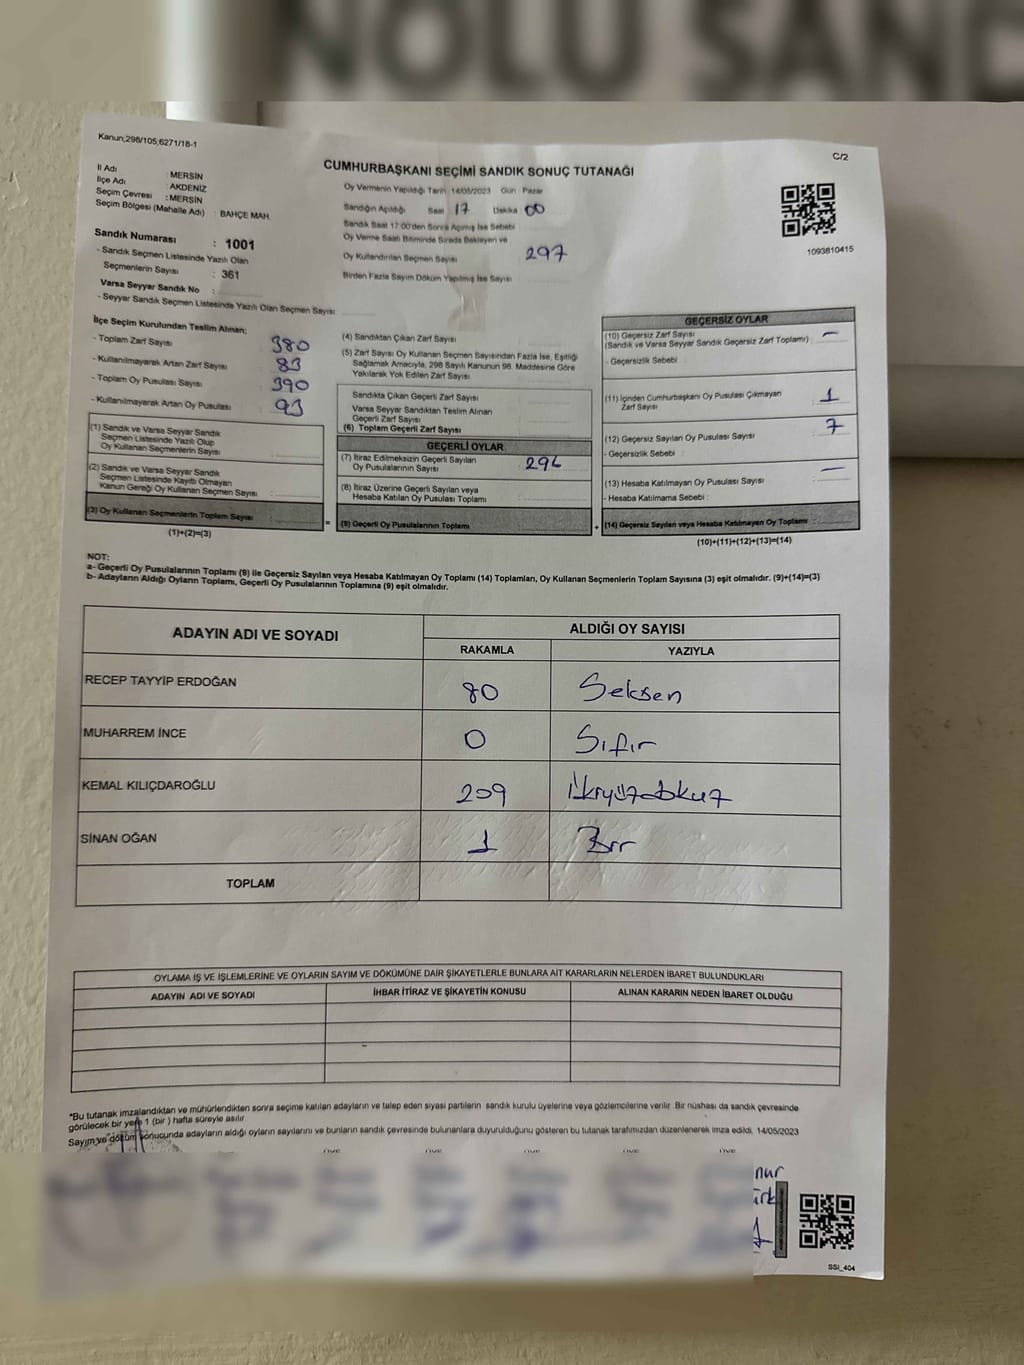 NOLU SAND
Kanun,298/105,6271/18-1
C/2
CUMHURBAŞKANI SEÇİMİ SANDIK SONUÇ TUTANAĞI
İl Adı : MERSİN
İlçe Adı : AKDENİZ
Seçim Çevresi : MERSİN
Seçim Bölgesi (Mahalle Adı) : BAHÇE MAH.
Sandık Numarası : 1001
- Sandık Seçmen Listesinde Yazılı Olan
Seçmenlerin Sayısı : 361
Varsa Seyyar Sandık No :
- Seyyar Sandık Seçmen Listesinde Yazılı Olan Seçmen Sayısı
Oy Vermenin Yapıldığı Tarih : 14/05/2023 Gün : Pazar
Sandığın Açıldığı Saat 17 Dakika 00
Sandık Saat 17:00'den Sonra Açılmış İse Sebebi
Oy Verme Saati Bitiminde Sırada Bekleyen ve
Oy Kullandırılan Seçmen Sayısı 297
Birden Fazla Sayım Döküm Yapılmış İse Sayısı
1093810415
İlçe Seçim Kurulundan Teslim Alınan;
- Toplam Zarf Sayısı : 380
- Kullanılmayarak Artan Zarf Sayısı : 83
- Toplam Oy Pusulası Sayısı : 390
- Kullanılmayarak Artan Oy Pusulası : 93
(1) Sandık ve Varsa Seyyar Sandık
Seçmen Listesinde Yazılı Olup
Oy Kullanan Seçmenlerin Sayısı
(2) Sandık ve Varsa Seyyar Sandık
Seçmen Listesinde Kayıtlı Olmayan
Kanun Gereği Oy Kullanan Seçmen Sayısı
(3) Oy Kullanan Seçmenlerin Toplam Sayısı :
(1)+(2)=(3)
(4) Sandıktan Çıkan Zarf Sayısı
(5) Zarf Sayısı Oy Kullanan Seçmen Sayısından Fazla İse, Eşitliği
Sağlamak Amacıyla, 298 Sayılı Kanunun 98. Maddesine Göre
Yakılarak Yok Edilen Zarf Sayısı
Sandıkta Çıkan Geçerli Zarf Sayısı
Varsa Seyyar Sandıktan Teslim Alınan
Geçerli Zarf Sayısı
(6) Toplam Geçerli Zarf Sayısı
GEÇERLİ OYLAR
(7) İtiraz Edilmeksizin Geçerli Sayılan
Oy Pusulalarının Sayısı
(8) İtiraz Üzerine Geçerli Sayılan veya
Hesaba Katılan Oy Pusulası Toplamı
= (9) Geçerli Oy Pusulalarının Toplamı
GEÇERSİZ OYLAR
(10) Geçersiz Zarf Sayısı –
(Sandık ve Varsa Seyyar Sandık Geçersiz Zarf Toplamı)
- Geçersizlik Sebebi
(11) İçinden Cumhurbaşkanı Oy Pusulası Çıkmayan
Zarf Sayısı 1
(12) Geçersiz Sayılan Oy Pusulası Sayısı 7
- Geçersizlik Sebebi :
(13) Hesaba Katılmayan Oy Pusulası Sayısı –
- Hesaba Katılmama Sebebi :
+ (14) Geçersiz Sayılan veya Hesaba Katılmayan Oy Toplamı :
(10)+(11)+(12)+(13)=(14)
NOT:
a- Geçerli Oy Pusulalarının Toplamı (9) ile Geçersiz Sayılan veya Hesaba Katılmayan Oy Toplamı (14) Toplamları, Oy Kullanan Seçmenlerin Toplam Sayısına (3) eşit olmalıdır. (9)+(14)=(3)
b- Adayların Aldığı Oyların Toplamı, Geçerli Oy Pusulalarının Toplamına (9) eşit olmalıdır.
ADAYIN ADI VE SOYADI ALDIĞI OY SAYISI
RAKAMLA YAZIYLA
RECEP TAYYİP ERDOĞAN 80 Seksen
MUHARREM İNCE 0 Sıfır
KEMAL KILIÇDAROĞLU 209 İkiyüzdokuz
SİNAN OĞAN 1 Bir
TOPLAM
OYLAMA İŞ VE İŞLEMLERİNE VE OYLARIN SAYIM VE DÖKÜMÜNE DAİR ŞİKAYETLERLE BUNLARA AİT KARARLARIN NELERDEN İBARET BULUNDUKLARI
ADAYIN ADI VE SOYADI İHBAR İTİRAZ VE ŞİKAYETİN KONUSU ALINAN KARARIN NEDEN İBARET OLDUĞU
*Bu tutanak imzalandıktan ve mühürlendikten sonra seçime katılan adayların ve talep eden siyasi partilerin sandık kurulu üyelerine veya gözlemcilerine verilir. Bir nüshası da sandık çevresinde
görülecek bir yere 1 (bir) hafta süreyle asılır.
Sayım ve döküm sonucunda adayların aldığı oyların sayılarını ve bunların sandık çevresinde bulunanlara duyurulduğunu gösteren bu tutanak tarafımızdan düzenlenerek imza edildi. 14/05/2023
nur
ürk
SSİ_404